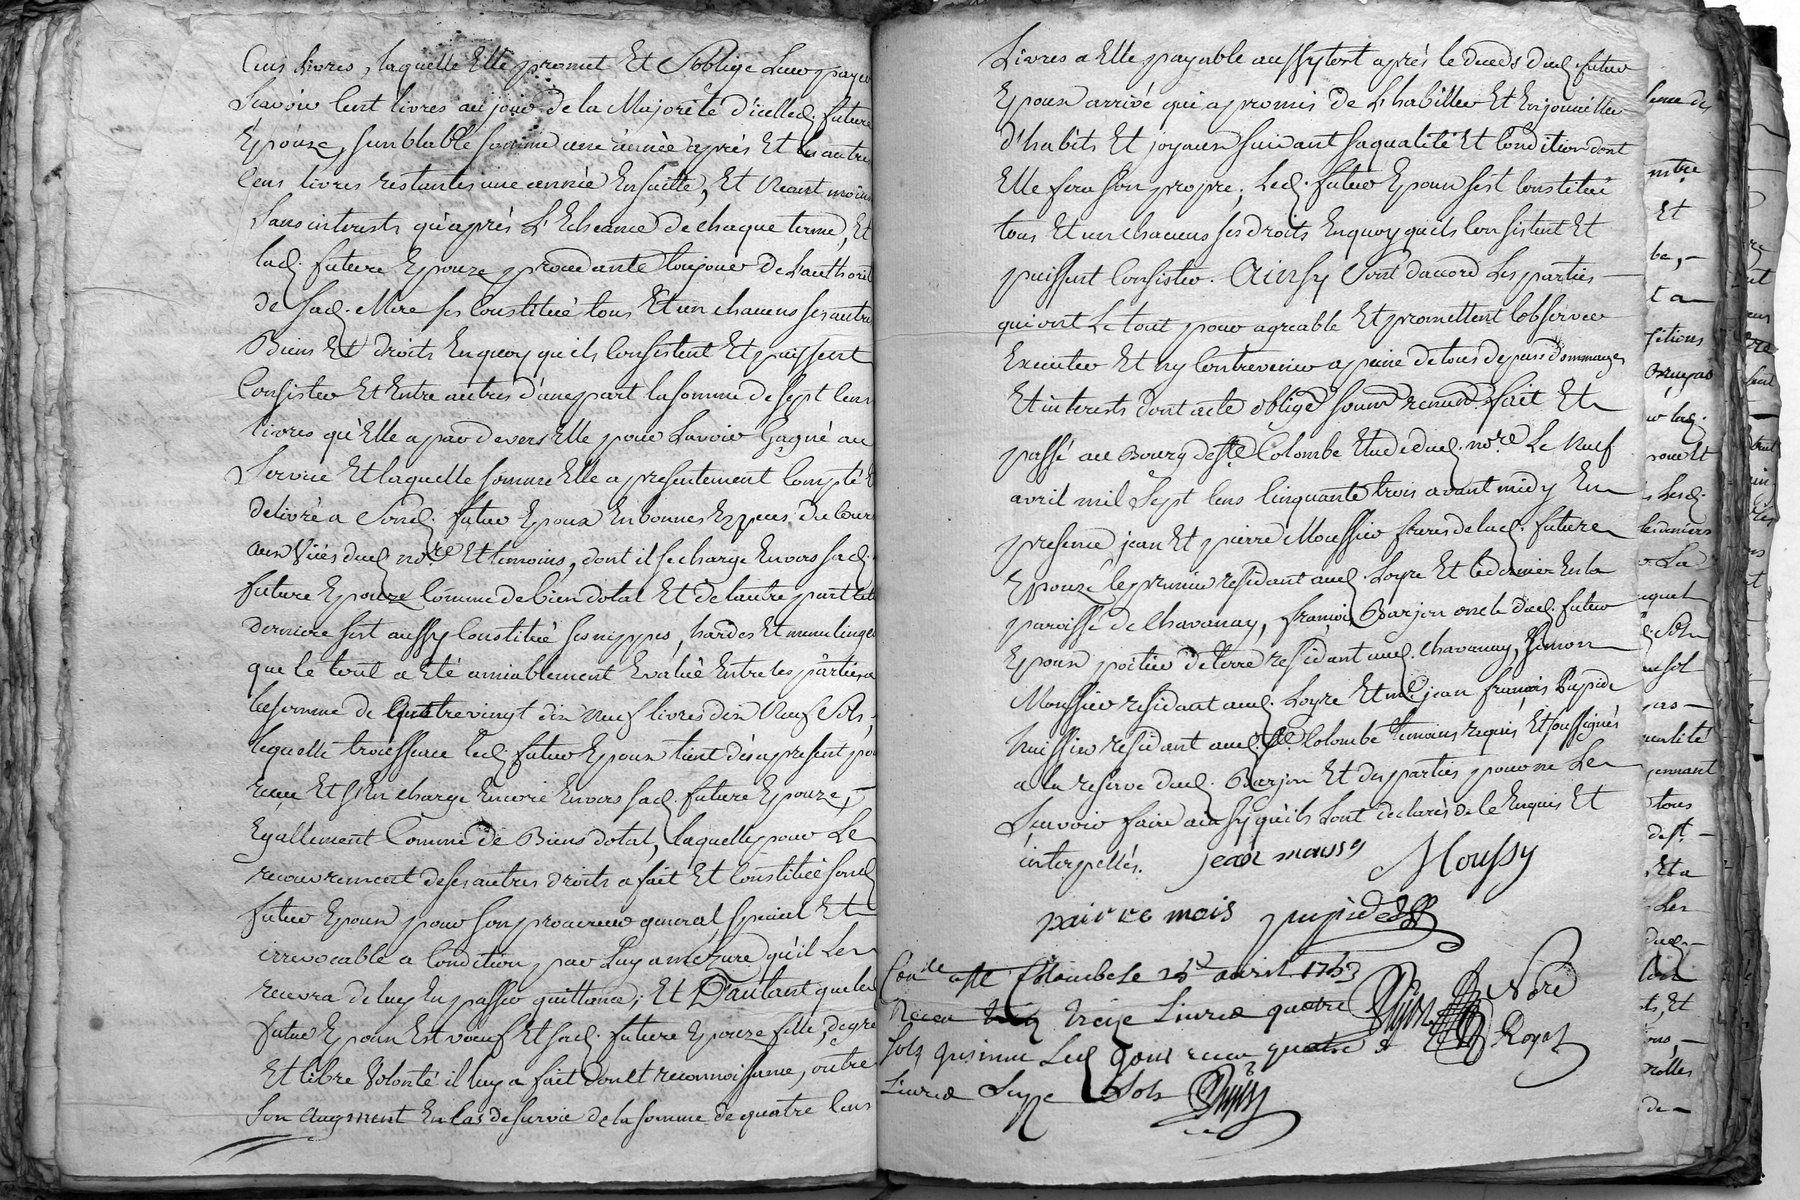 Cens Livres, laquelle Elle promet Et S'oblige Leur payer
Scavoir Cent livres au jour de la Majorité d'icelled. future
Epouze, semblable somme une année après Et les autres
Cens livres restantes une année Ensuitte, Et Neant moins
Sans interests qu'après L'Echeance de chaque terme, Et
lad. future Epouze procedante toujour de L'authorité
de Sad. Mere s'est Constitué tous Et un chacuns ses autres
Biens Et droits Enquoy quils Consistent Et puissent
Consister Et Entre autres d'une part la somme de sept Cens
livres qu'Elle a par devers Elle pour L'avoir Gagné au
Service Et laquelle somme Elle a presentement Compté Et
delivré a Sond. futur Epoux En bonnes Especes du Cours
aux Vües dud. no.re Et temoins, dont il se charge Envers sad.
future Epouze Comme de bien dotal Et de l'autre part cette
derniere s'est aussy Constitué ses nippes, hardes Et menu linges
que le tout a Eté amiablement Evalué Entre les parties a
la somme de Quatrevingt dix Neuf livres dix Neuf Sols,
lequelle trousseau led. futur Epoux tient dès apresent pour
receu Et s'En charge Encore Envers sad. future Epouze,
Egallement Comme de Biens dotal, laquelle pour Le
recouvrement de ses autres droits a fait Et Constitué sond.
futur Epoux pour son procureur general, special Et
irrevocable a Condition par Luy a mezure qu'il Les
recevra de luy En passer quittance; Et D'autant que led.
futur Epoux Est voeuf Et sad. future Epouze fille, de gré
Et libre Volonté il luy a fait don Et reconnoissance, outre
Son Augment En Cas de survie de la somme de quatre Cens
Livres a Elle payable aussytost après le deceds dud. futur
Epoux arrivé qui a promis de L'habiller Et Enjouailler
d'habits Et joyaux suivant sa qualité Et Condition dont
Elle fera son propre; Led. futur Epoux s'est Constitué
tous Et un chacuns ses droits Enquoy quils Consistent Et
puissent Consister. Ainsy Sont d'accord Les parties
qui ont Le tout pour agreable Et promettent L'observer
Executer Et n'y Contrevenir a peine de tous depens dommages
Et interests dont acte obligé soumd renund. fait Et
passé au Bourg de Ste Colombe Etude dud. no.re Le Neuf
avril mil Sept Cens Cinquante trois avant midy En
presence jean Et pierre Moussier freres de lad. future
Epouze le premier residant aud. Loyre Et le dernier En la
paroisse de Chavanay, francois Barjon oncle dud. futur
Epoux potier de terre residant aud. Chavanay, Simon
Moussier residant aud. Loyre Et me jean francois Pupide
huissier residant aud. Ste Colombe temoins requis Et soussignés
a la reserve dud. Barjon Et des parties pour ne Le
Scavoir faire ainsy qu'ils L'ont declarés de le Enquis Et
interpellés. jean moussy Moussy
paire mois pupide
Con.le a Ste Colombe le 24 avril 1753
Receu treize Livres quatre Noré
Sols quinme Led. pour receu quatre Royet
Livres Seize Sols